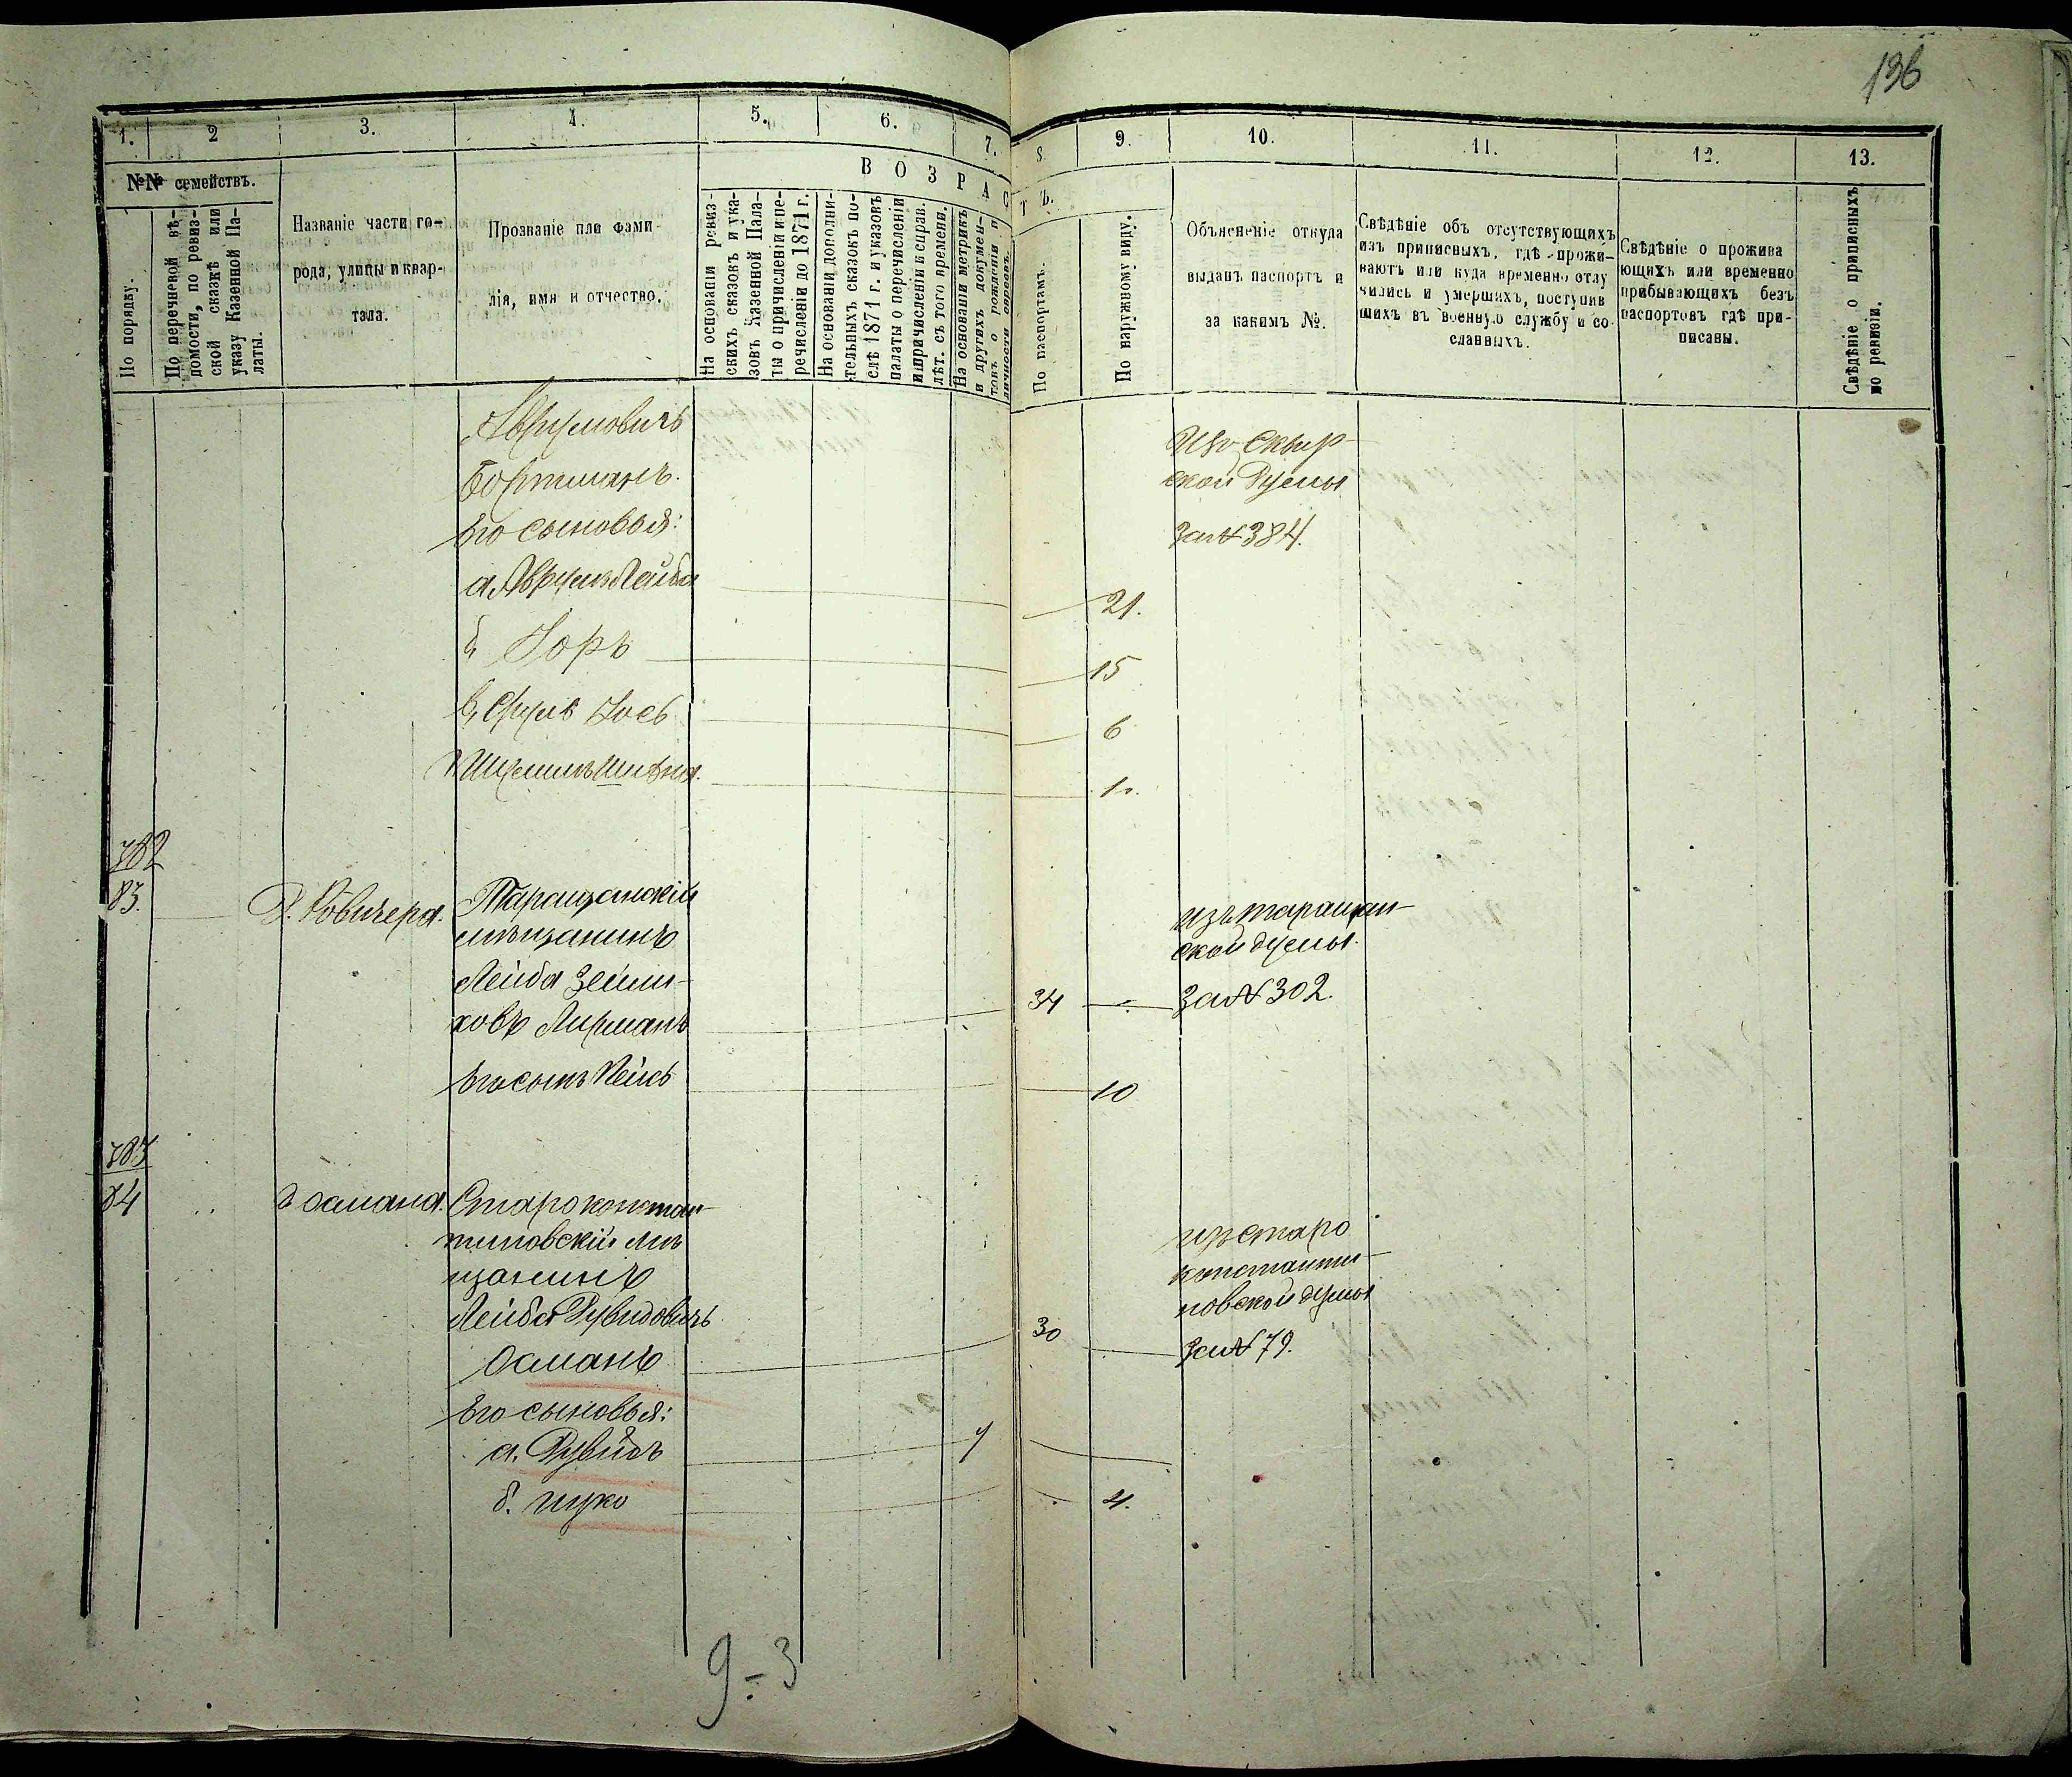 136
1.
2
3.
4.
5.
6.
7.
8.
9.
10.
11.
12.
13.
№№ семействъ.
По порядку.
По перечневой вѣ-
домости, по ревиз-
ской сказкѣ или
указу Казенной Па-
латы.
Названіе части го-
рода, улицы и квар-
тала.
Прозваніе или фами-
лія, имя и отчество.
ВОЗРАСТЪ.
На основаніи ревиз-
скихъ сказокъ и ука-
зовъ Казенной Пала-
ты о причисленіи и пе-
речисленіи до 1871 г.
На основаніи дополни-
тельныхъ сказокъ по-
слѣ 1871 г. и указовъ
палаты о перечисленіи
и причисленіи в справ.
лѣт. съ того времени.
На основаніи метрикъ
и другихъ докумен-
товъ о рожденіи и
личности евреевъ.
По паспортамъ.
По наружному виду.
Объясненіе откуда
выданъ паспортъ и
за какимъ №.
Свѣдѣніе объ отсутствующихъ
изъ приписныхъ, гдѣ прожи-
ваютъ или куда временно отлу
чились и умершихъ, поступив
шихъ въ военную службу и со
сланныхъ.
Свѣдѣніе о прожива
ющихъ или временно
прибывающихъ безъ
паспортовъ гдѣ при-
писаны.
Свѣдѣніе о приписныхъ
по ревизіи.
Аврумовичъ
Бортманъ.
Его сыновья:
а Аврумъ Лейба
21.
б, Іоръ
15
в, Сруль Іось
6
1.
Изъ Сквир-
ской Думы
За № 384.
782
83.
Таращанскій
мѣщанинъ
Лейба Зейли-
ховъ Лирманъ
34
изъ таращан-
ской думы.
За № 302.
Его сынъ Пейсь
10
783
84
д Османа.
Староконстан-
тиновскій мѣ
щанинъ
Лейба Рувидовичъ
Османъ
30
изъ старо
константи-
новской думы
За № 79.
Его сыновья:
а. Рувидъ
7
б. ицко
4.
9 - 3